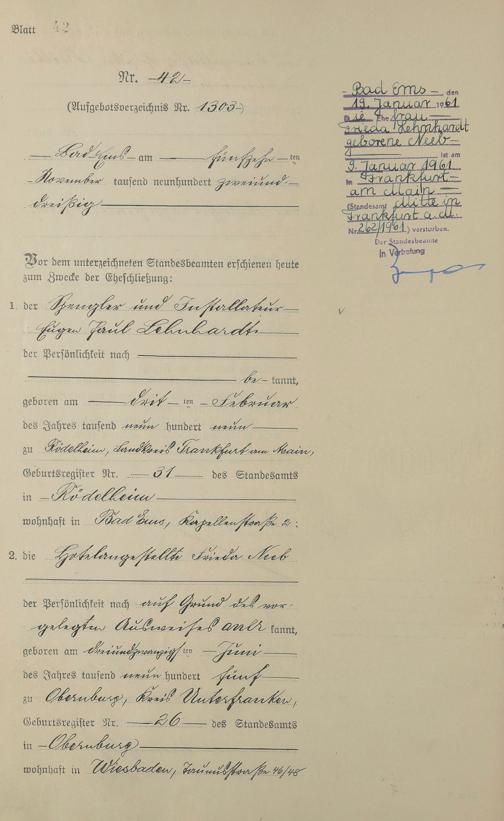 Blatt 42
Nr. 42
(Aufgebotsverzeichnis Nr. 1303)
Bad Ems am fünfzehn ten
November tausend neunhundert zweiund-
dreißig
Vor dem unterzeichneten Standesbeamten erschienen heute
zum Zwecke der Eheschließung:
1. der Spengler und Installateur
Eugen Paul Lehnhardt
der Persönlichkeit nach
be- kannt,
geboren am drit ten Februar
des Jahres tausend neun hundert neun
zu Rödelheim, Landkreis Frankfurt am Main,
Geburtsregister Nr. 31 des Standesamts
in Rödelheim
wohnhaft in Bad Ems, Kapellenstraße 2;
2. die Hotelangestellte Frieda Neeb
der Persönlichkeit nach auf Grund des vor-
gelegten Ausweises aner kannt,
geboren am dreiundzwanzigs ten Juni
des Jahres tausend neun hundert fünf
zu Obernburg, Kreis Unterfranken,
Geburtsregister Nr. 26 des Standesamts
in Obernburg
wohnhaft in Wiesbaden, Taunusstraße 46/48
Bad Ems den
19. Januar 1961
Die Ehefrau
Frieda Lehnhardt
geborene Neeb
ist am
9. Januar 1961
in Frankfurt
am Main
(Standesamt Mitte in
Frankfurt a.M.
Nr. 262/1961) verstorben.
Der Standesbeamte
In Vertretung